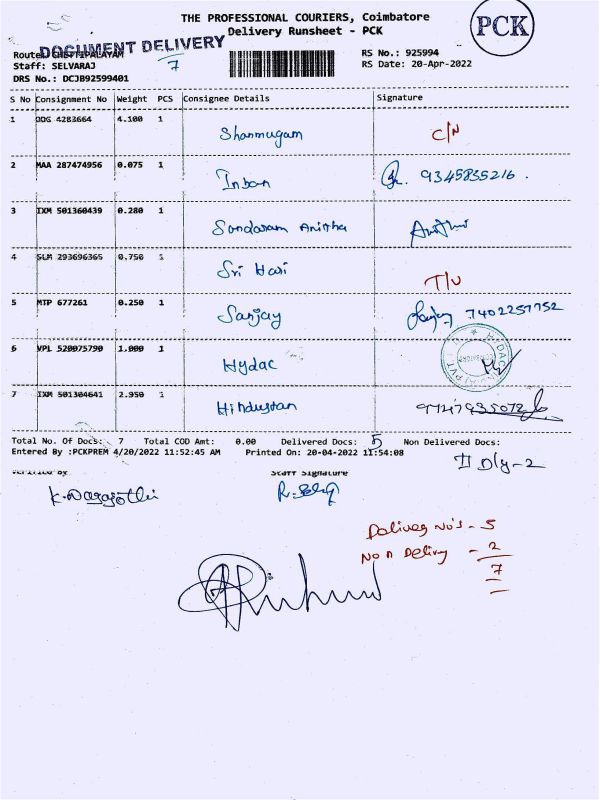 THE PROFESSIONAL COURIERS, Coimbatore
Delivery Runsheet - PCK
PCK
DOCUMENT DELIVERY
Route: CHETTIPALAYAM
7
RS No.: 925994
Staff: SELVARAJ
RS Date: 20-Apr-2022
DRS No.: DCJB92599401
S No Consignment No Weight PCS Consignee Details Signature
1 ODG 4283664 4.100 1 Shanmugam C/N
2 MAA 287474956 0.075 1 Inban 9345835216.
3 IXM 501360439 0.280 1 Sondaram Anitha
4 SLM 293696365 0.750 1 Sri Hari T/U
5 MTP 677261 0.250 1 Sanjay Sanjay 7402257752
6 VPL 520075790 1.000 1 Hydac
7 IXM 501304641 2.950 1 Hindustan
Total No. Of Docs: 7 Total COD Amt: 0.00 Delivered Docs: 5 Non Delivered Docs:
Entered By :PCKPREM 4/20/2022 11:52:45 AM Printed On: 20-04-2022 11:54:08
II Dly-2
Verified By Staff Signature
Delivery No's - 5
Non Delivery - 2
7